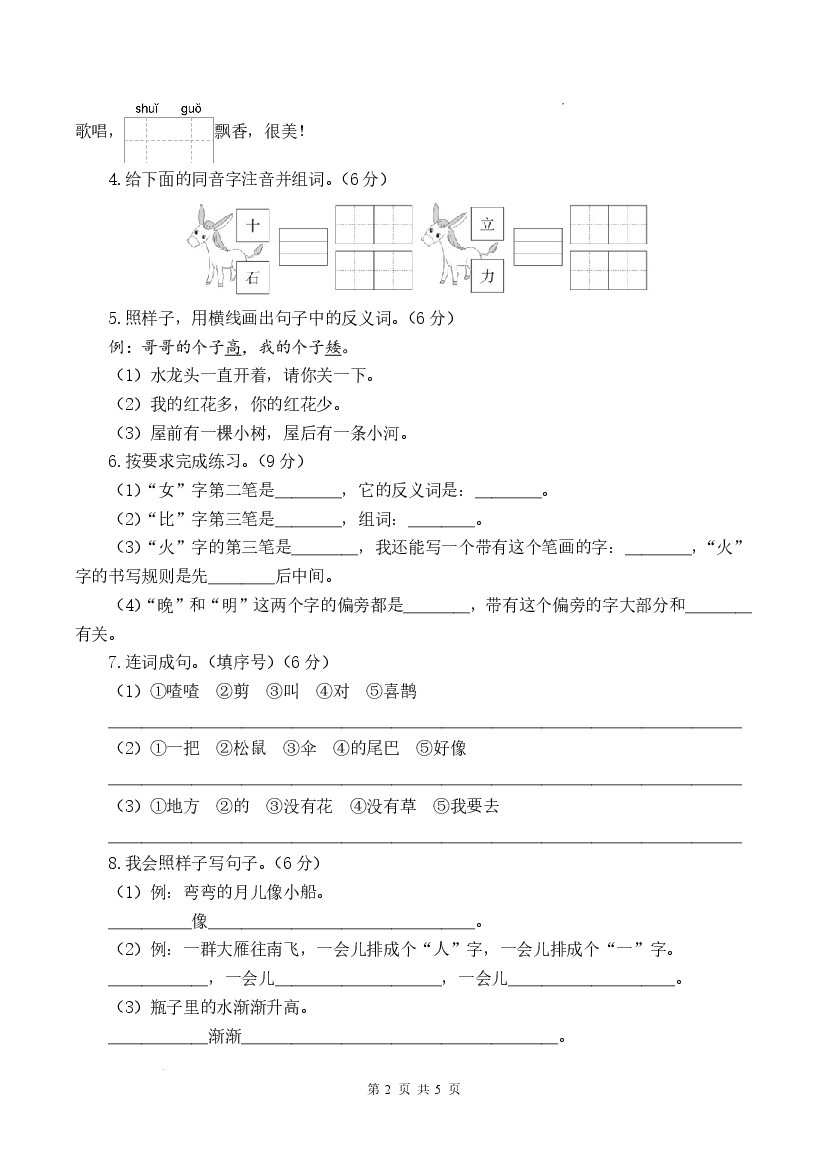 shuǐ guǒ
歌唱，飘香，很美！
4.给下面的同音字注音并组词。（6分）
十 立
石 力
5.照样子，用横线画出句子中的反义词。（6分）
例：哥哥的个子高，我的个子矮。
（1）水龙头一直开着，请你关一下。
（2）我的红花多，你的红花少。
（3）屋前有一棵小树，屋后有一条小河。
6.按要求完成练习。（9分）
（1）“女”字第二笔是________，它的反义词是：________。
（2）“比”字第三笔是________，组词：________。
（3）“火”字的第三笔是________，我还能写一个带有这个笔画的字：________，“火”
字的书写规则是先________后中间。
（4）“晚”和“明”这两个字的偏旁都是________，带有这个偏旁的字大部分和________
有关。
7.连词成句。（填序号）（6分）
（1）①喳喳 ②剪 ③叫 ④对 ⑤喜鹊
（2）①一把 ②松鼠 ③伞 ④的尾巴 ⑤好像
（3）①地方 ②的 ③没有花 ④没有草 ⑤我要去
8.我会照样子写句子。（6分）
（1）例：弯弯的月儿像小船。
__________像________________________________。
（2）例：一群大雁往南飞，一会儿排成个“人”字，一会儿排成个“一”字。
____________，一会儿____________________，一会儿____________________。
（3）瓶子里的水渐渐升高。
____________渐渐______________________________________。
第 2 页 共 5 页